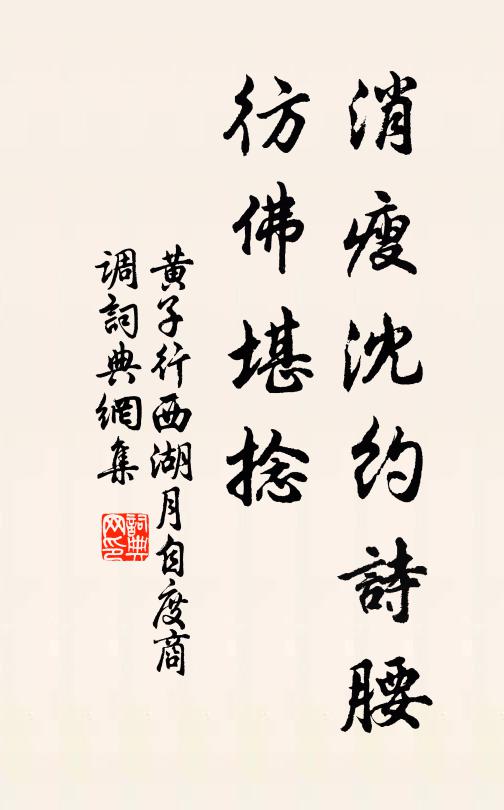 消瘦沈约詩腰
彷佛堪捻
黄子行西湖月自度商
调詞典網集
詞典网印